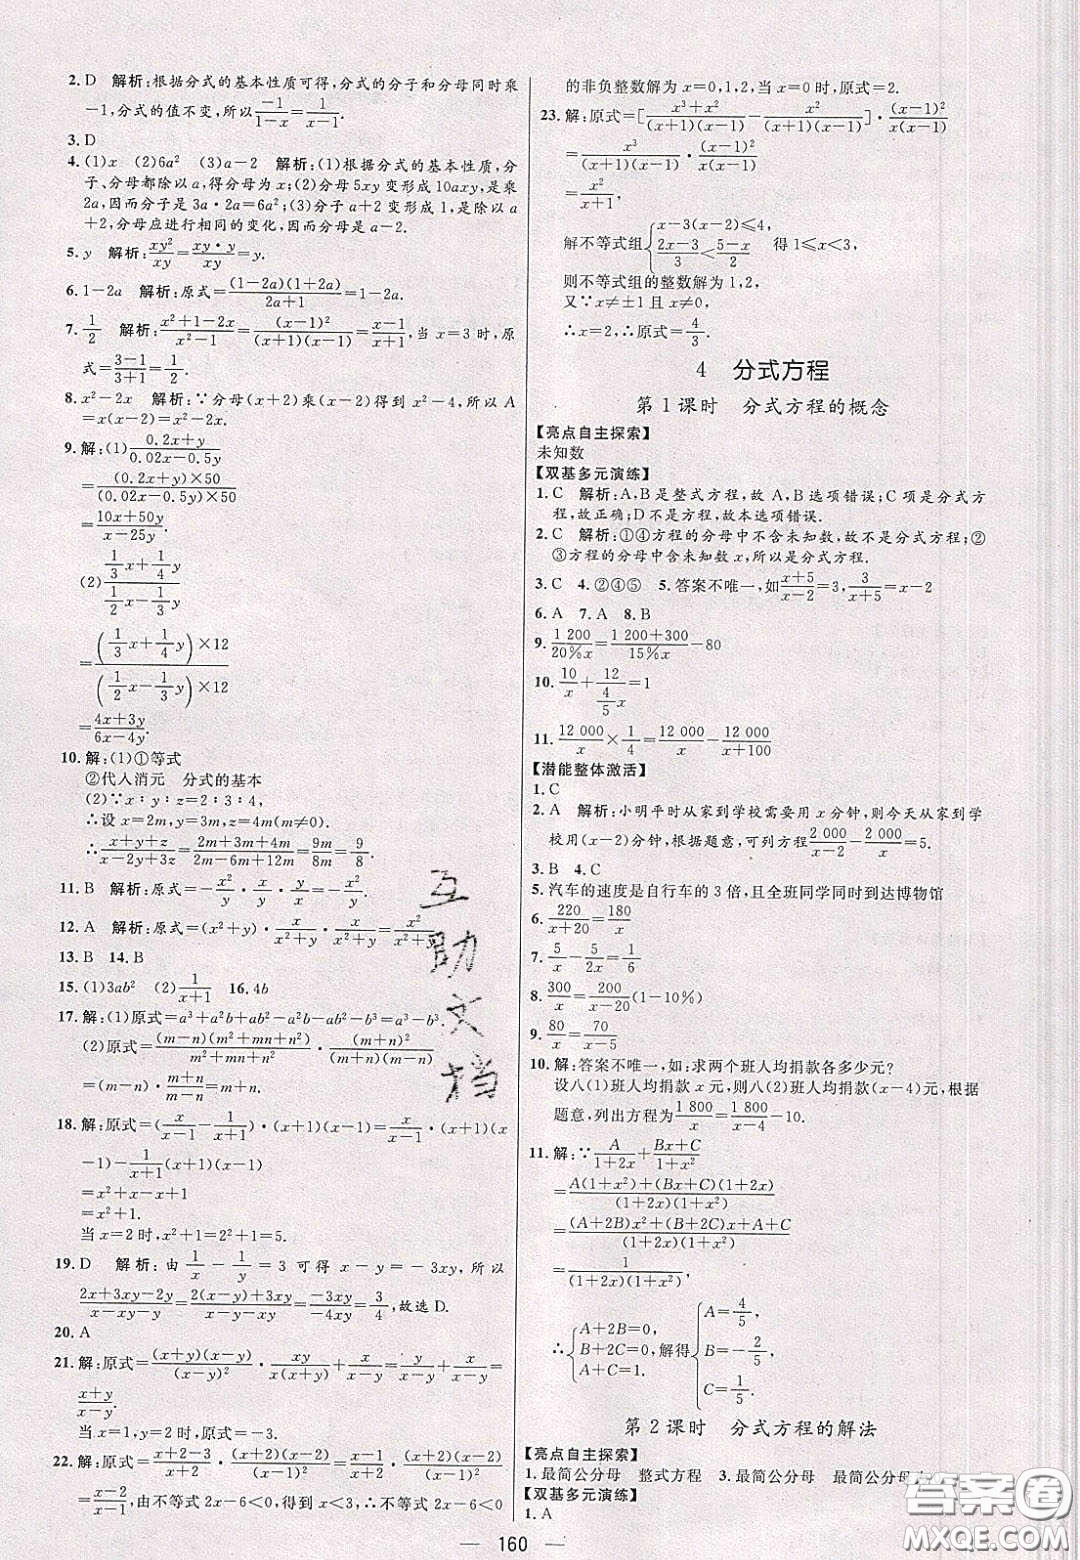 2. D 解析:根据分式的基本性质可得,分式的分子和分母同时乘
-1,分式的值不变,所以\frac{-1}{1-x}=\frac{1}{x-1}.
3. D
4. (1)x (2)6a² (3)a-2 解析:(1)根据分式的基本性质,分
子、分母都除以a,得分母为x;(2)分母5xy变形成10axy,是乘
2a,因而分子是3a·2a=6a²;(3)分子a+2变形成1,是除以a
+2,分母应进行相同的变化,因而分母是a-2.
5. y 解析:\frac{xy²}{xy}=\frac{xy·y}{xy}=y.
6. 1-2a 解析:原式=\frac{(1-2a)(1+2a)}{2a+1}=1-2a.
7. \frac{1}{2} 解析:\frac{x²+1-2x}{x²-1}=\frac{(x-1)²}{(x+1)(x-1)}=\frac{x-1}{x+1},当x=3时,原
式=\frac{3-1}{3+1}=\frac{1}{2}.
8. x²-2x 解析:∵分母(x+2)乘(x-2)得到x²-4,所以A
=x(x-2)=x²-2x.
9. 解:(1)\frac{0.2x+y}{0.02x-0.5y}
=\frac{(0.2x+y)×50}{(0.02x-0.5y)×50}
=\frac{10x+50y}{x-25y}.
(2)\frac{\frac{1}{3}x+\frac{1}{4}y}{\frac{1}{2}x-\frac{1}{3}y}
=\frac{(\frac{1}{3}x+\frac{1}{4}y)×12}{(\frac{1}{2}x-\frac{1}{3}y)×12}
=\frac{4x+3y}{6x-4y}.
10. 解:(1)①等式
②代人消元 分式的基本
(2)∵x:y:z=2:3:4,
∴设x=2m,y=3m,z=4m(m≠0).
∴\frac{x+y+z}{x-2y+3z}=\frac{2m+3m+4m}{2m-6m+12m}=\frac{9m}{8m}=\frac{9}{8}.
11. B 解析:原式=-\frac{x²}{y}·\frac{x}{y}·\frac{y}{x}=-\frac{x²}{y}.
12. A 解析:原式=(x²+y)·\frac{x}{x²+y}·\frac{x}{x²+y}=\frac{x²}{x²+y}.
13. B 14. B
15. (1)3ab² (2)\frac{1}{x+1} 16. 4b
17. 解:(1)原式=a³+a²b+ab²-a²b-ab²-b³=a³-b³.
(2)原式=\frac{(m-n)(m²+mn+n²)}{m²+mn+n²}·\frac{(m+n)²}{(m+n)(m-n)}
=(m-n)·\frac{m+n}{m-n}=m+n.
18. 解:原式=(\frac{x}{x-1}-\frac{1}{x+1})·(x+1)(x-1)=\frac{x}{x-1}·(x+1)(x
-1)-\frac{1}{x+1}(x+1)(x-1)
=x²+x-x+1
=x²+1.
当x=2时,x²+1=2²+1=5.
19. D 解析:由\frac{1}{x}-\frac{1}{y}=3可得x-y=-3xy,所以
\frac{2x+3xy-2y}{x-xy-y}=\frac{2(x-y)+3xy}{x-y-xy}=\frac{-3xy}{-4xy}=\frac{3}{4},故选D.
20. A
21. 解:原式=\frac{(x+y)(x-y)}{(x-y)²}·\frac{xy}{xy}+\frac{x}{x-y}=\frac{y}{x-y}+\frac{x}{x-y}=
\frac{x+y}{x-y}.
当x=1,y=2时,原式=-3.
22. 解:原式=\frac{x+2-3}{x+2}·\frac{(x+2)(x-2)}{(x-1)²}=\frac{x-1}{x+2}·\frac{(x+2)(x-2)}{(x-1)²}
=\frac{x-2}{x-1},由不等式2x-6<0,得到x<3,∴不等式2x-6<0
的非负整数解为x=0,1,2,当x=0时,原式=2.
23. 解:原式=[\frac{x³+x²}{(x+1)(x-1)}-\frac{x²}{(x+1)(x-1)}]·\frac{(x-1)²}{x(x-1)}
=\frac{x³}{(x+1)(x-1)}·\frac{(x-1)²}{x(x-1)}
=\frac{x²}{x+1},
解不等式组{x-3(x-2)≤4, \frac{2x-3}{3}<\frac{5-x}{2} 得1≤x<3,
则不等式组的整数解为1,2,
又∵x≠±1且x≠0,
∴x=2,∴原式=\frac{4}{3}.
4 分式方程
第1课时 分式方程的概念
【亮点自主探索】
未知数
【双基多元演练】
1. C 解析:A,B是整式方程,故A、B选项错误;C项是分式方
程,故正确;D不是方程,故本选项错误.
2. C 解析:①④方程的分母中不含未知数,故不是分式方程;②
③方程的分母中含未知数x,所以是分式方程.
3. C 4. ②④⑤ 5. 答案不唯一,如\frac{x+5}{x-2}=3,\frac{3}{x+5}=x-2
6. A 7. A 8. B
9. \frac{1 200}{20%x}=\frac{1 200+300}{15%x}-80
10. \frac{10}{x}+\frac{12}{\frac{4}{5}x}=1
11. \frac{12 000}{x}×\frac{1}{4}=\frac{12 000}{x}-\frac{12 000}{x+100}
【潜能整体激活】
1. C
2. A 解析:小明平时从家到学校需要用x分钟,则今天从家到学
校用(x-2)分钟,根据题意,可列方程\frac{2 000}{x-2}-\frac{2 000}{x}=5.
3. B 4. C
5. 汽车的速度是自行车的3倍,且全班同学同时到达博物馆
6. \frac{220}{x+20}=\frac{180}{x}
7. \frac{5}{x}-\frac{5}{2x}=\frac{1}{6}
8. \frac{300}{x}=\frac{200}{x-20}(1-10%)
9. \frac{80}{x}=\frac{70}{x-5}
10. 解:答案不唯一,如:求两个班人均捐款各多少元?
设八(1)班人均捐款x元,则八(2)班人均捐款(x-4)元,根据
题意,列出方程为\frac{1 800}{x}=\frac{1 800}{x-4}-10.
11. 解:∵\frac{A}{1+2x}+\frac{Bx+C}{1+x²}
=\frac{A(1+x²)+(Bx+C)(1+2x)}{(1+2x)(1+x²)}
=\frac{(A+2B)x²+(B+2C)x+A+C}{(1+2x)(1+x²)}
=\frac{1}{(1+2x)(1+x²)},
∴{A+2B=0, B+2C=0, A+C=1. 解得{A=\frac{4}{5}, B=-\frac{2}{5}, C=\frac{1}{5}.
第2课时 分式方程的解法
【亮点自主探索】
1. 最简公分母 整式方程 3. 最简公分母 最简公分母
【双基多元演练】
1. A
160
互助文档
答案圈
MXQE.COM